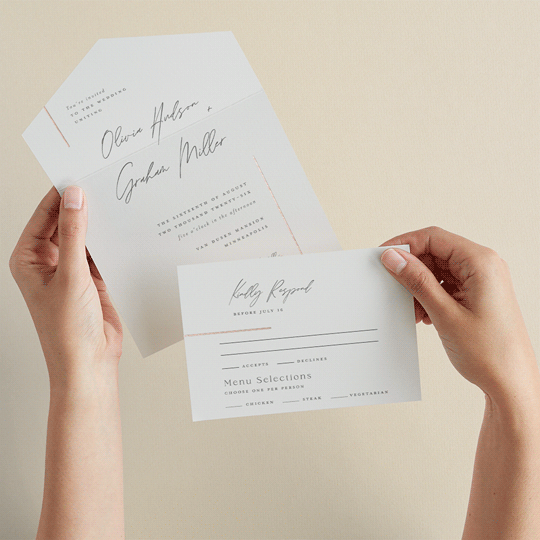 You're invited
TO THE WEDDING
UNITING
Olivia Hudson +
Graham Miller
THE SIXTEENTH OF AUGUST
TWO THOUSAND TWENTY-SIX
five o'clock in the afternoon
VAN DUSEN MANSION
MINNEAPOLIS
Kindly Respond
BEFORE JULY 16
ACCEPTS DECLINES
Menu Selections
CHOOSE ONE PER PERSON
CHICKEN STEAK VEGETARIAN